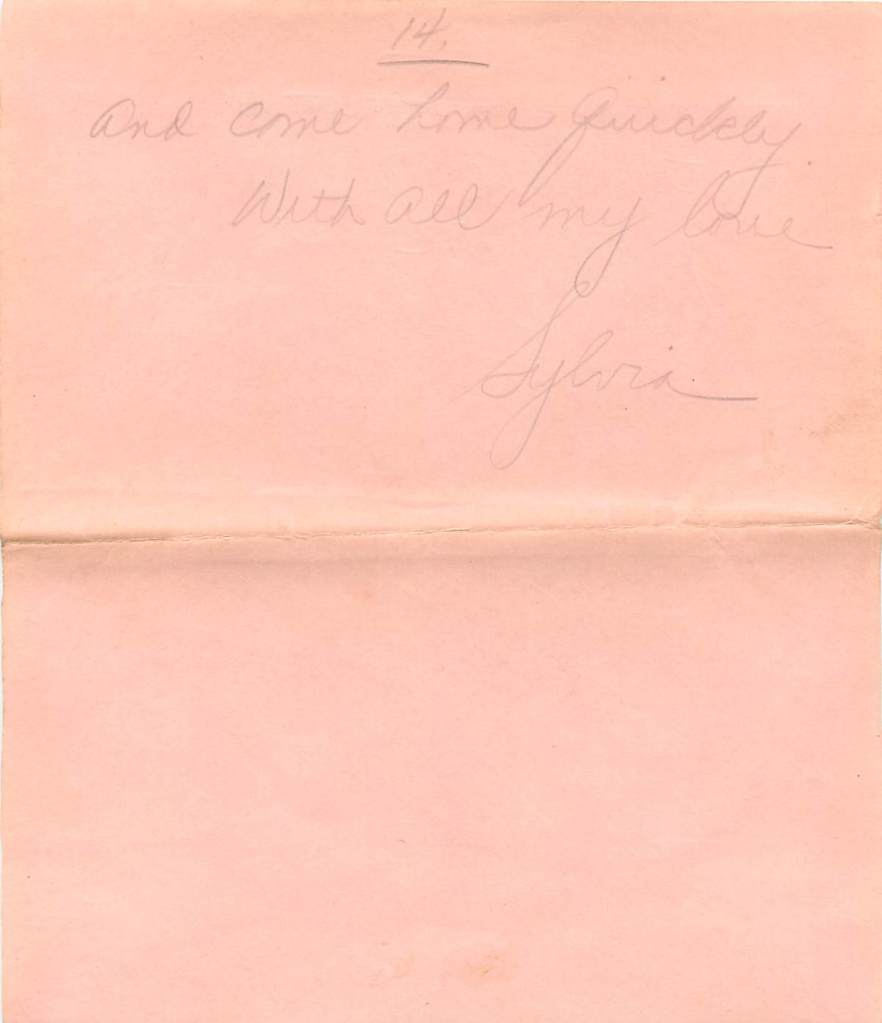 14.
and come home quickly.
With all my love
Sylvia